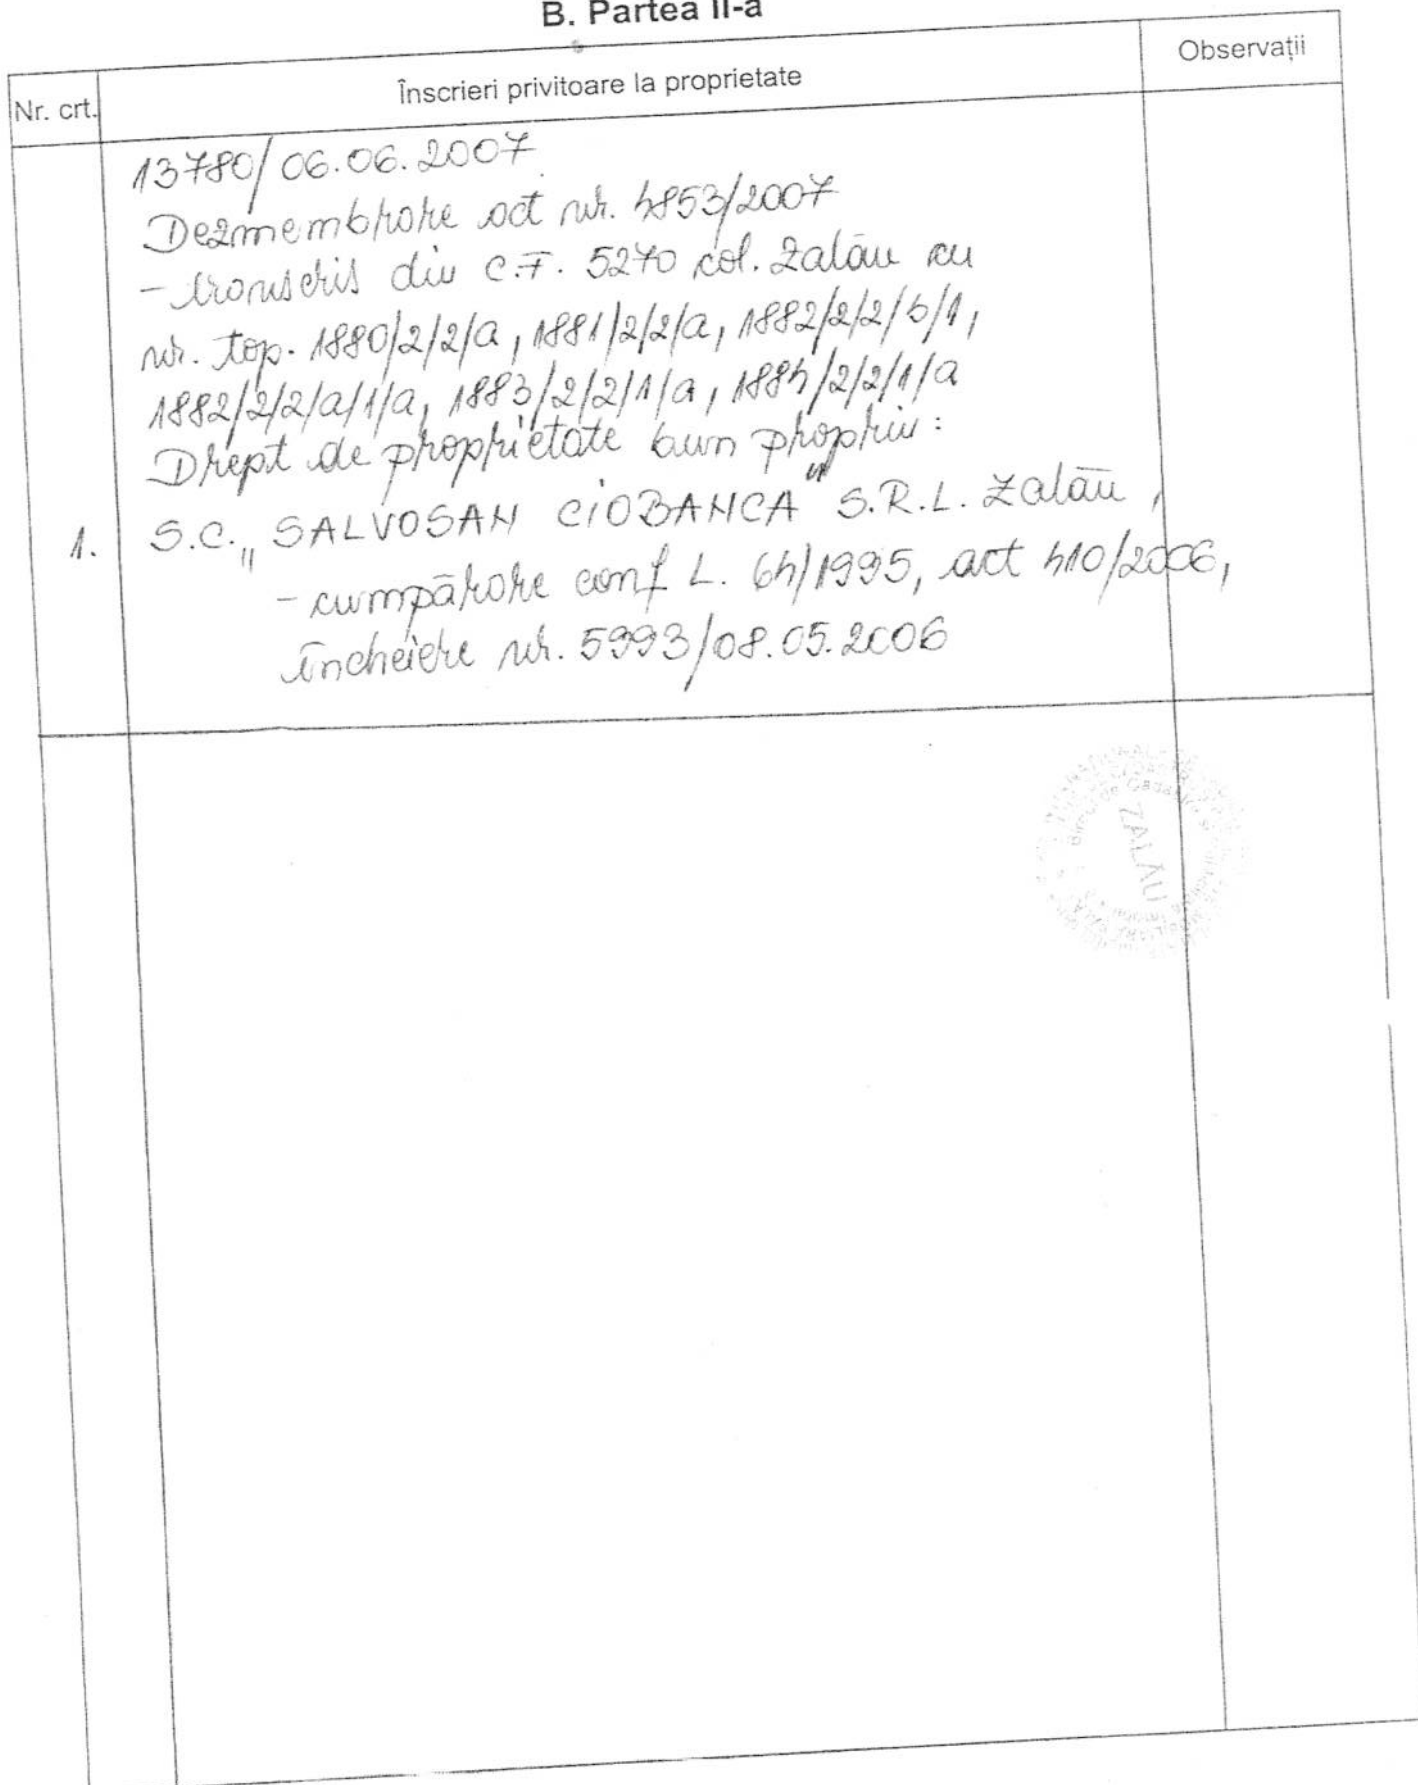 B. Partea II-a
Nr. crt.
Înscrieri privitoare la proprietate
Observații
13780/06.06.2007
Dezmembrare act nr. 4853/2007
- transcris din C.F. 5270 col. Zalău cu
nr. top. 1880/2/2/a, 1881/2/2/a, 1882/2/2/b/1,
1882/2/2/a/1/a, 1883/2/2/1/a, 1884/2/2/1/a
Drept de proprietate bun propriu:
1. S.C. „SALVOSAN CIOBANCA" S.R.L. Zalău,
- cumpărare conf L. 64/1995, act 410/2006,
încheiere nr. 5993/08.05.2006
ZALĂU